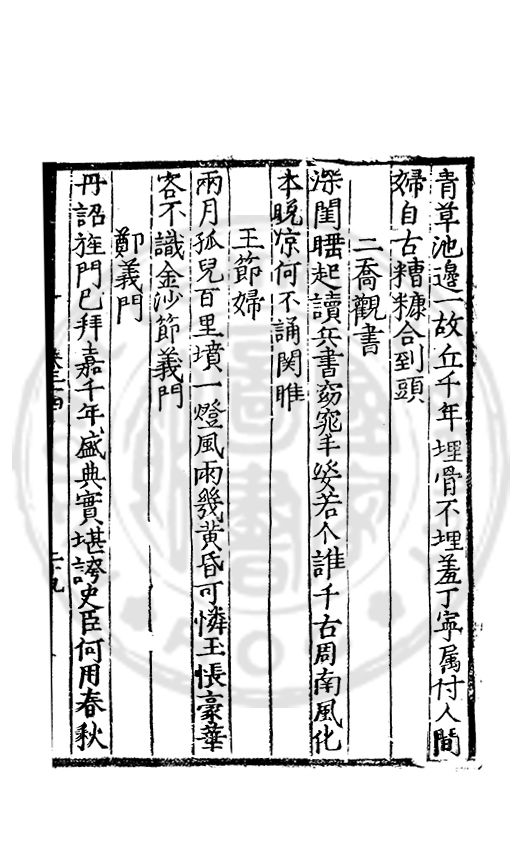 青草池邊一故丘千年埋骨不埋羞丁寧属付人間
婦自古糟糠合到頭
二喬觀書
深閨睡起讀兵書窈窕丰姿若个誰千古周南風化
本晚凉何不誦関雎
王節婦
兩月孤兒百里墳一燈風雨幾黄昏可憐玉帳豪華
客不識金沙節義門
鄭義門
丹詔旌門已拜嘉千年盛典實堪誇史臣何用春秋